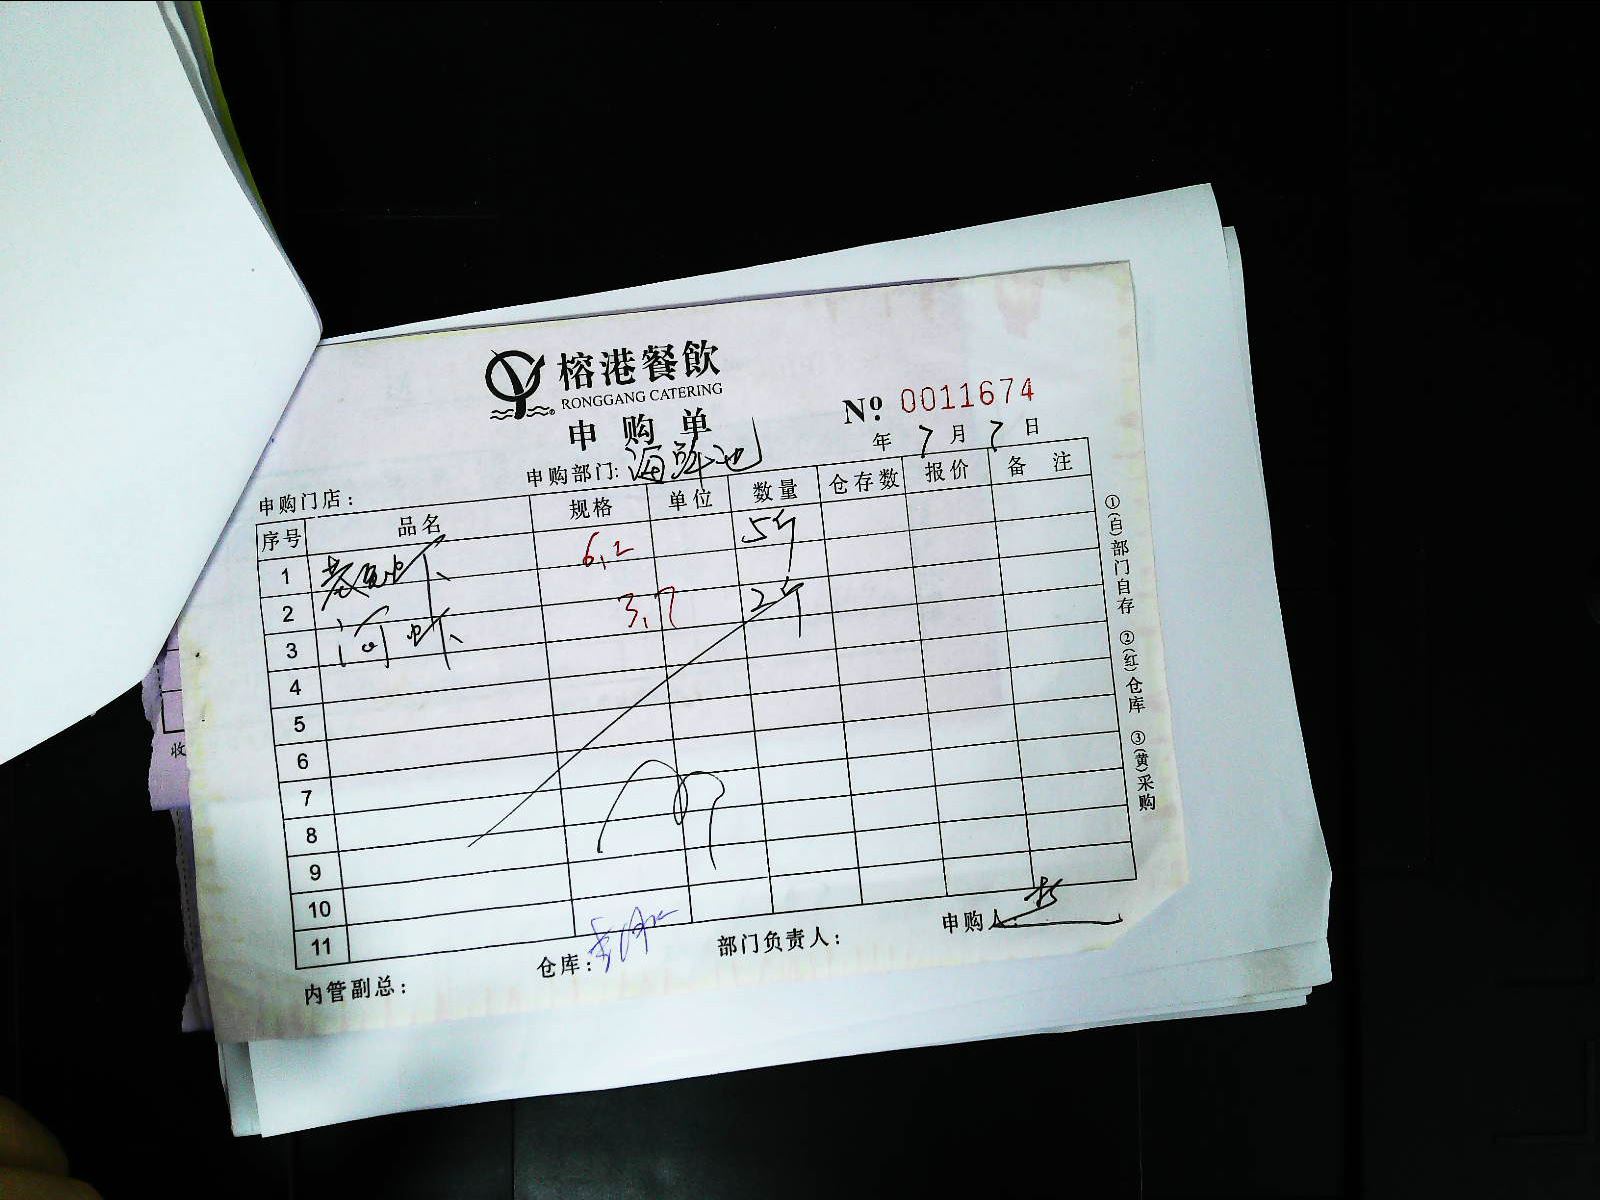 榕港餐飲
RONGGANG CATERING
申购单
Nº: 0011674
年 7 月 7 日
申购门店：
申购部门: 海鲜池
序号 品名 规格 单位 数量 仓存数 报价 备注
1 虾 6.2 5斤
2 河虾 3.7 2斤
3
4
5
6
7
8
9
10
11
内管副总：
仓库：
部门负责人：
申购人:
①(白)部门自存 ②(红)仓库 ③(黄)采购
收